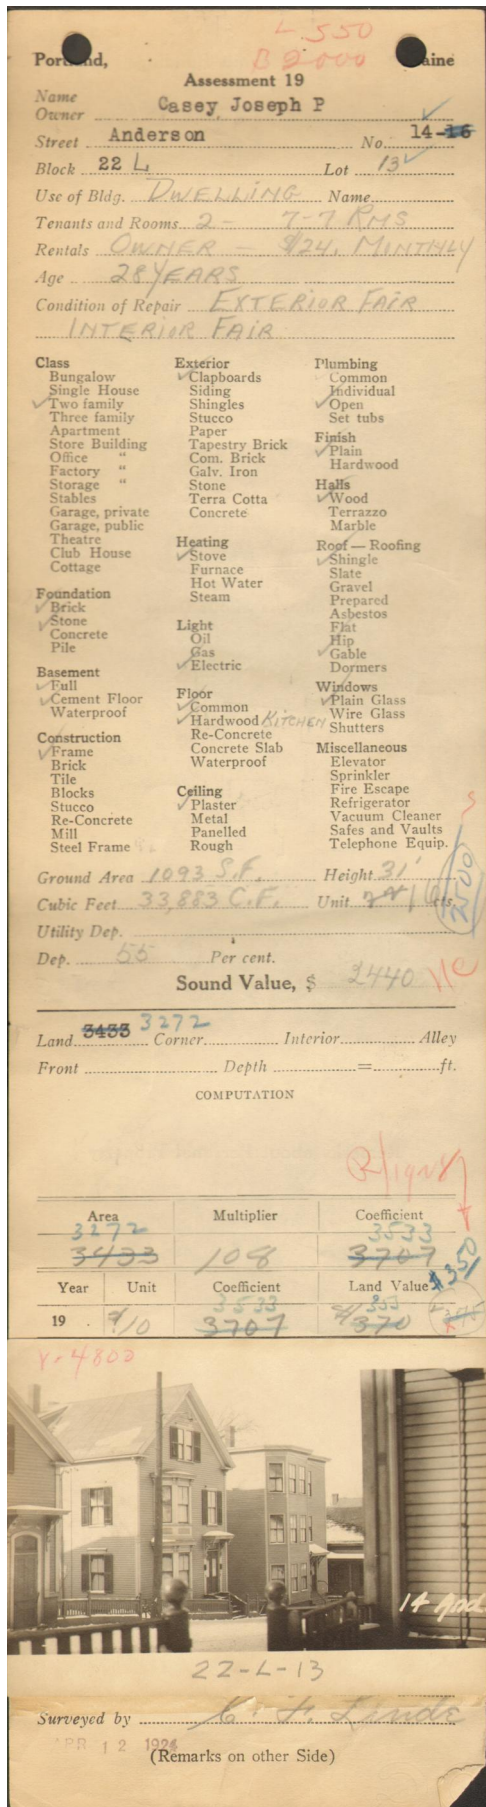 L 350
B 2000
Portland, Maine
Assessment 19
Name
Owner Casey, Joseph P
Street Anderson No. 14-16
Block 22 L Lot 13
Use of Bldg. DWELLING Name
Tenants and Rooms 2 - 7-7 RMS
Rentals OWNER - $24. MONTHLY
Age 28 YEARS
Condition of Repair EXTERIOR FAIR
INTERIOR FAIR
Class
Bungalow
Single House
Two family
Three family
Apartment
Store Building
Office "
Factory "
Storage "
Stables
Garage, private
Garage, public
Theatre
Club House
Cottage
Foundation
Brick
Stone
Concrete
Pile
Basement
Full
Cement Floor
Waterproof
Construction
Frame
Brick
Tile
Blocks
Stucco
Re-Concrete
Mill
Steel Frame
Exterior
Clapboards
Siding
Shingles
Stucco
Paper
Tapestry Brick
Com. Brick
Galv. Iron
Stone
Terra Cotta
Concrete
Heating
Stove
Furnace
Hot Water
Steam
Light
Oil
Gas
Electric
Floor
Common
Hardwood KITCHEN
Re-Concrete
Concrete Slab
Waterproof
Ceiling
Plaster
Metal
Panelled
Rough
Plumbing
Common
Individual
Open
Set tubs
Finish
Plain
Hardwood
Halls
Wood
Terrazzo
Marble
Roof — Roofing
Shingle
Slate
Gravel
Prepared
Asbestos
Flat
Hip
Gable
Dormers
Windows
Plain Glass
Wire Glass
Shutters
Miscellaneous
Elevator
Sprinkler
Fire Escape
Refrigerator
Vacuum Cleaner
Safes and Vaults
Telephone Equip.
Ground Area 1093 S.F. Height 31'
Cubic Feet 33,883 C.F. Unit 16 cts.
Utility Dep.
Dep. 55 Per cent.
Sound Value, $ 2440
Land 3433 3272 Corner Interior Alley
Front Depth = ft.
COMPUTATION
Area Multiplier Coefficient
3272 3533
3433 108 3707
$350
Year Unit Coefficient Land Value
3533 353
19 $10 3707 $370
Y-4802
14 And
22-L-13
Surveyed by C. F. Linde
APR 12 1924
(Remarks on other Side)